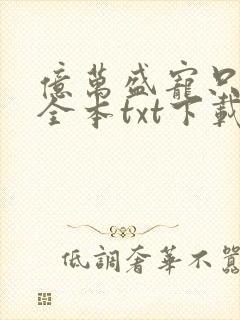 億萬盛寵只
全本txt下載
低調奢華不囂